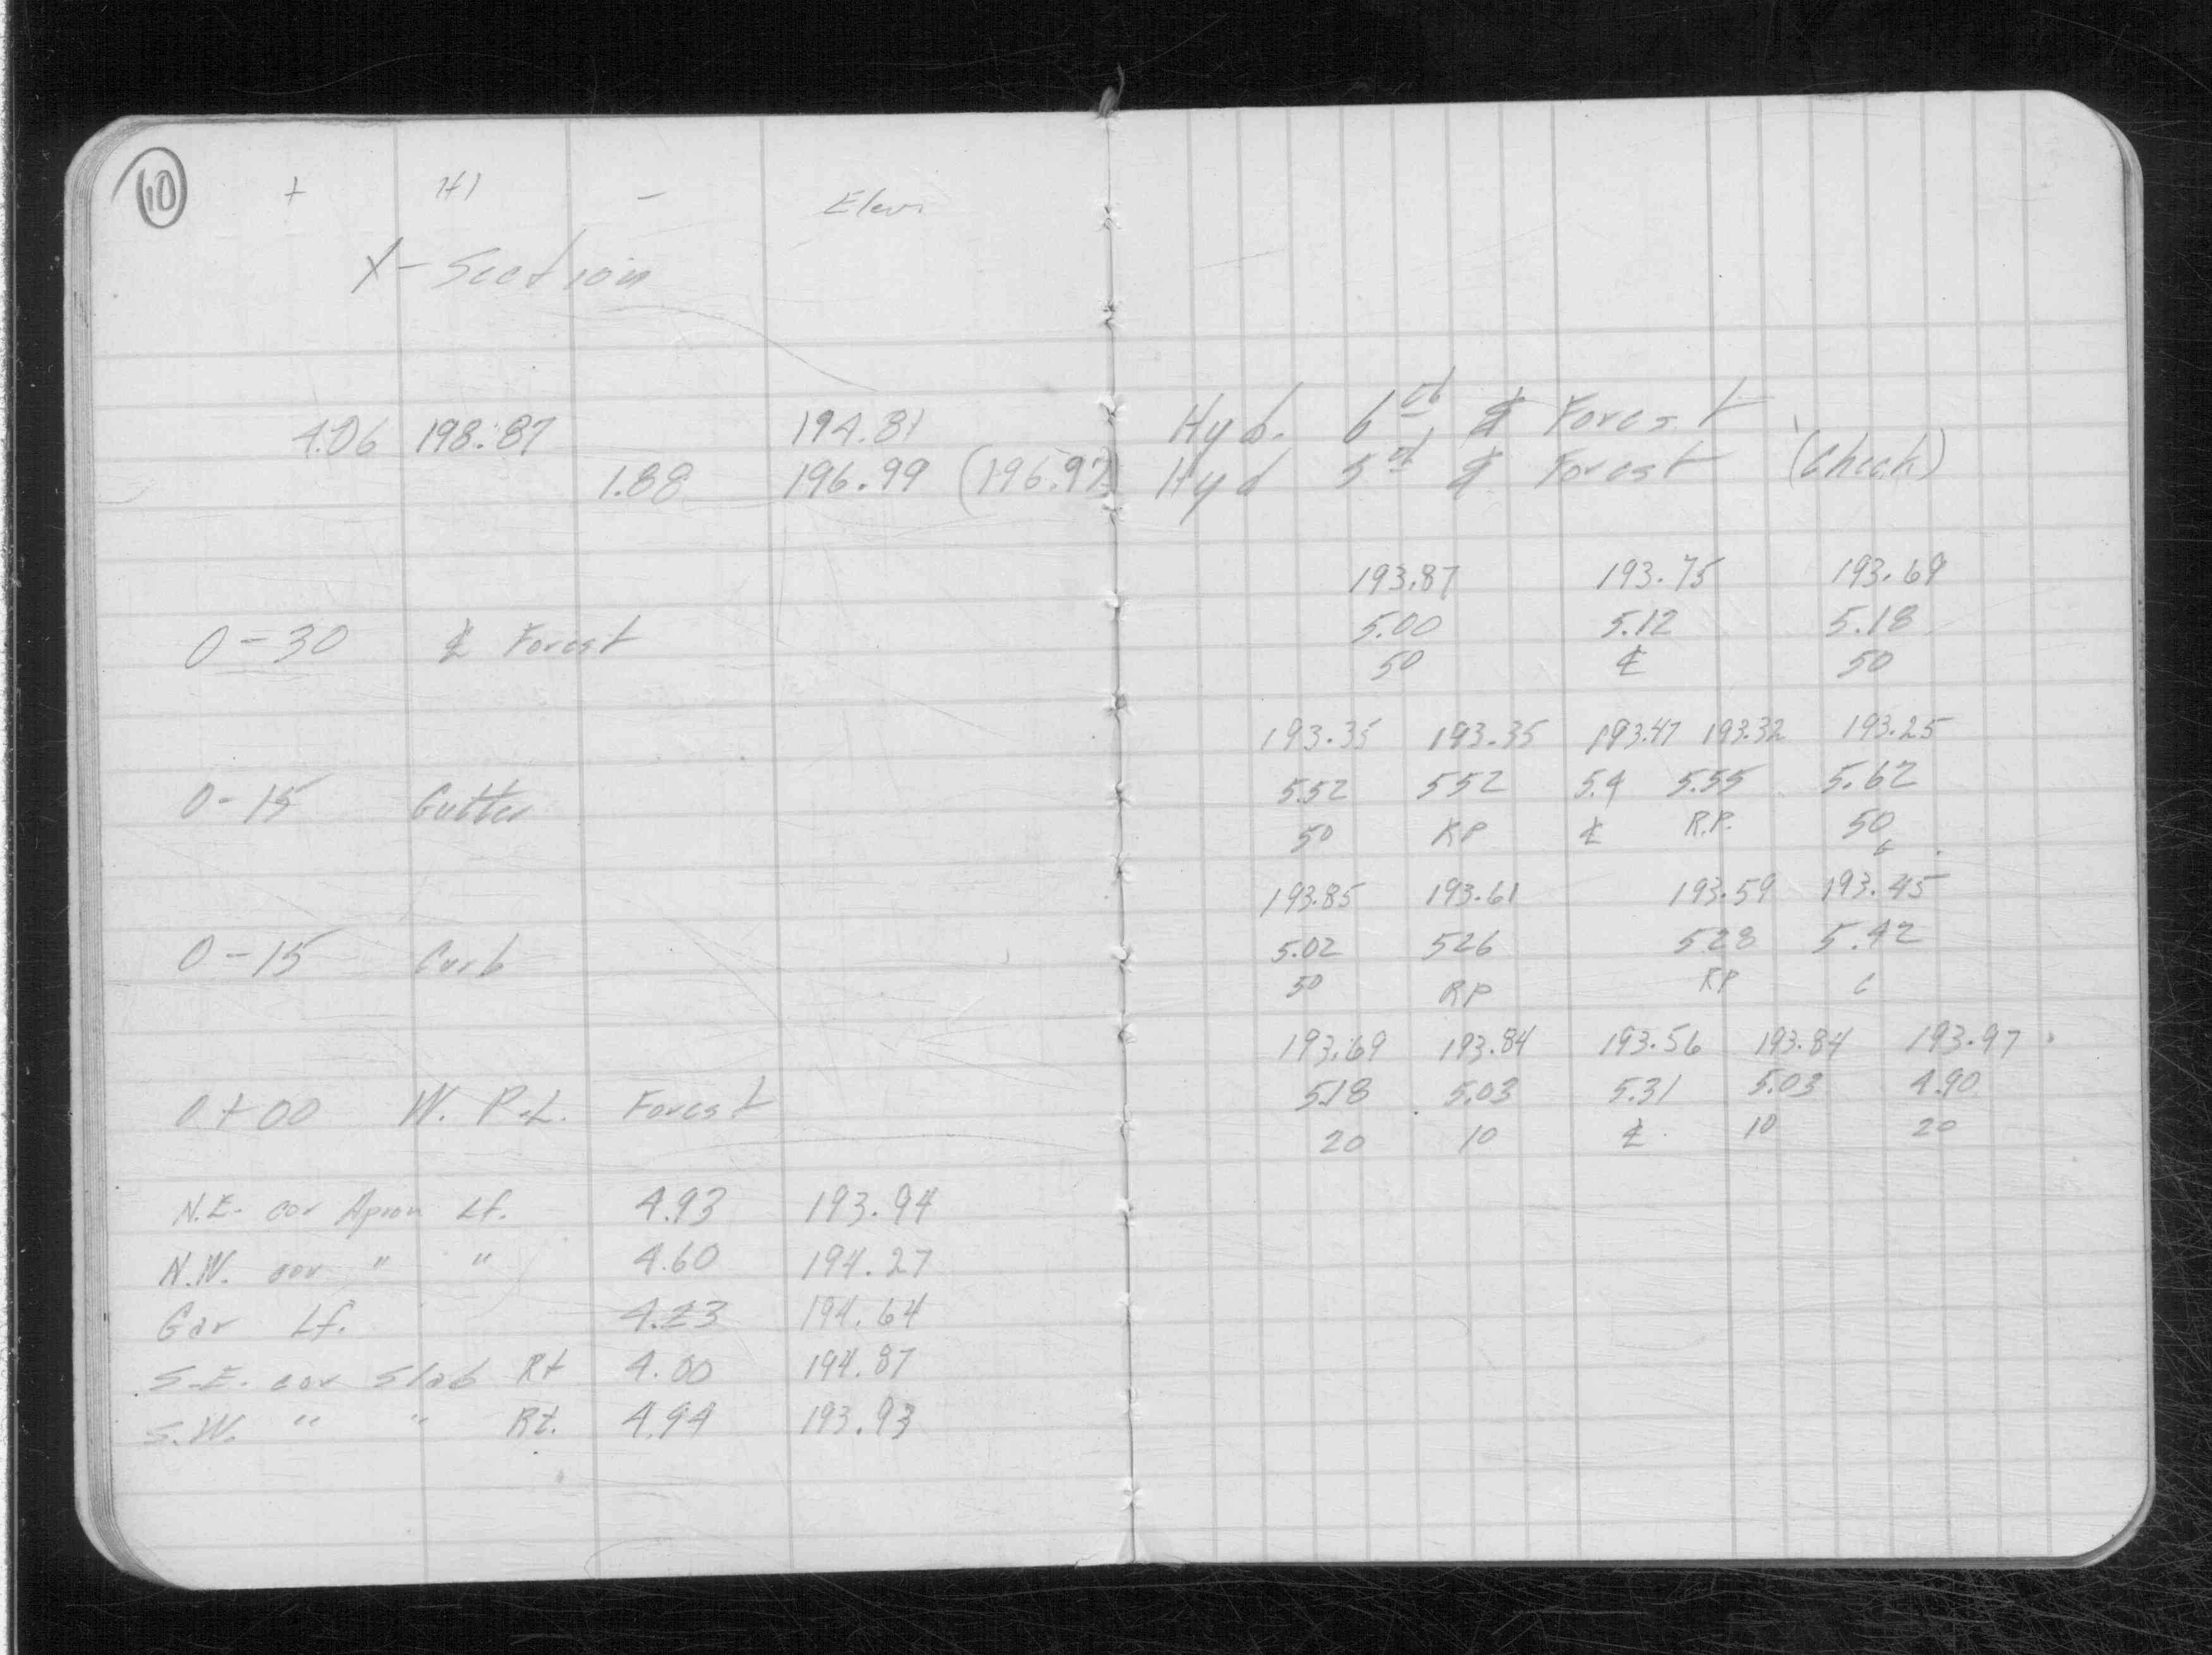 10
+ HI - Elev.
X-Section
4.06 198.87 194.81 Hyd. 6th & Forest
1.88 196.99 (196.97) Hyd 5th & Forest (Check)
193.87 193.75 193.69
0-30 ℄ Forest 5.00 5.12 5.18
50 ℄ 50
193.35 193.35 193.47 193.32 193.25
0-15 Gutter 5.52 552 5.4 5.55 5.62
50 RP ℄ R.P. 50
193.85 193.61 193.59 193.45
0-15 Curb 5.02 526 528 5.42
50 RP RP
193.69 193.84 193.56 193.84 193.97
0+00 W. P.L. Forest 5.18 5.03 5.31 5.03 4.90
20 10 ℄ 10 20
N.E. cor Apron Lf. 4.93 193.94
N.W. cor " " 4.60 194.27
Gar Lf. 4.23 194.64
S.E. cor Slab Rt 4.00 194.87
S.W. " " Rt. 4.94 193.93